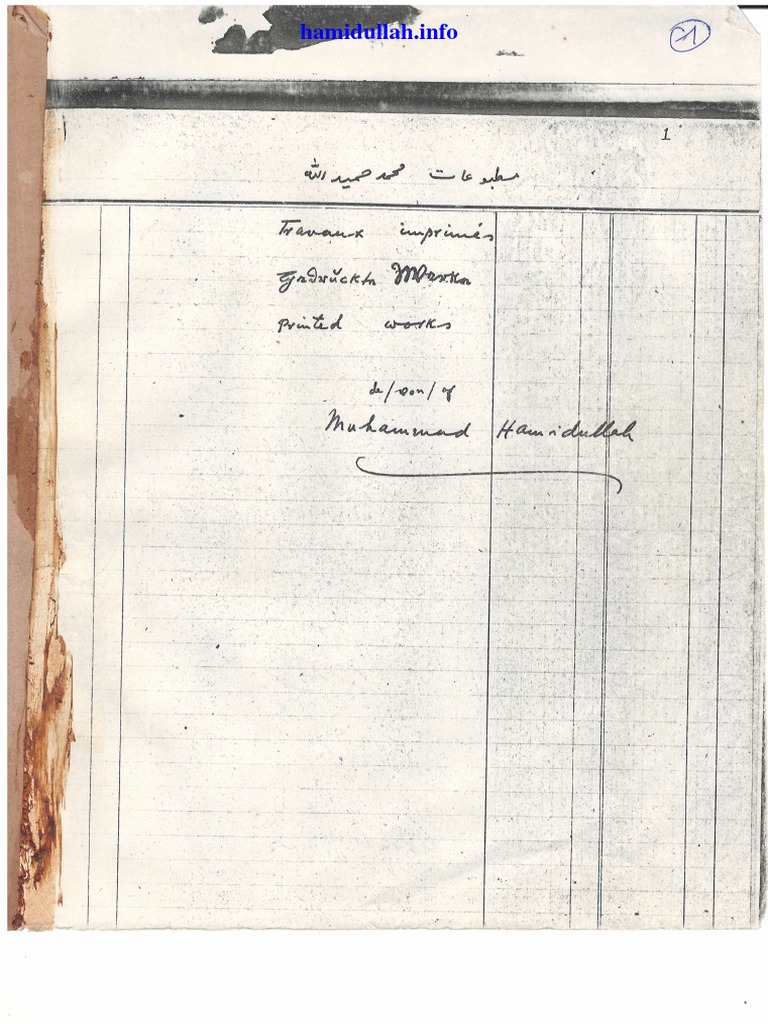 hamidullah.info
1
1
مطبوعات محمد حميد الله
Travaux imprimés
Gedruckte Werke
Printed works
de/von/of
Muhammad Hamidullah